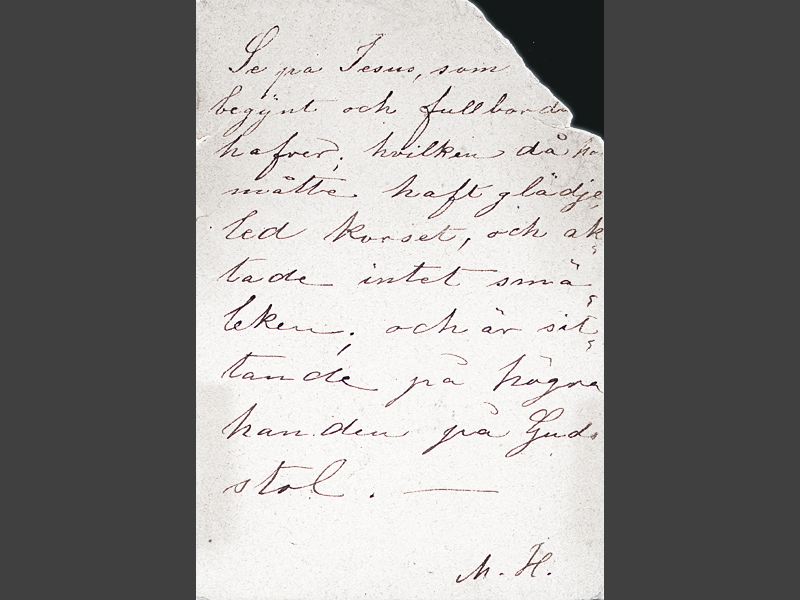 Se på Jesus, som
begynt och fullborda
hafver; hvilken då ha
måtte haft glädje,
led korset, och ak-
tade intet smä-
leken; och är sit-
tande på högra
handen på Guds
stol. —
M. H.